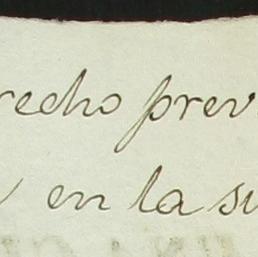 recho prev
en la su